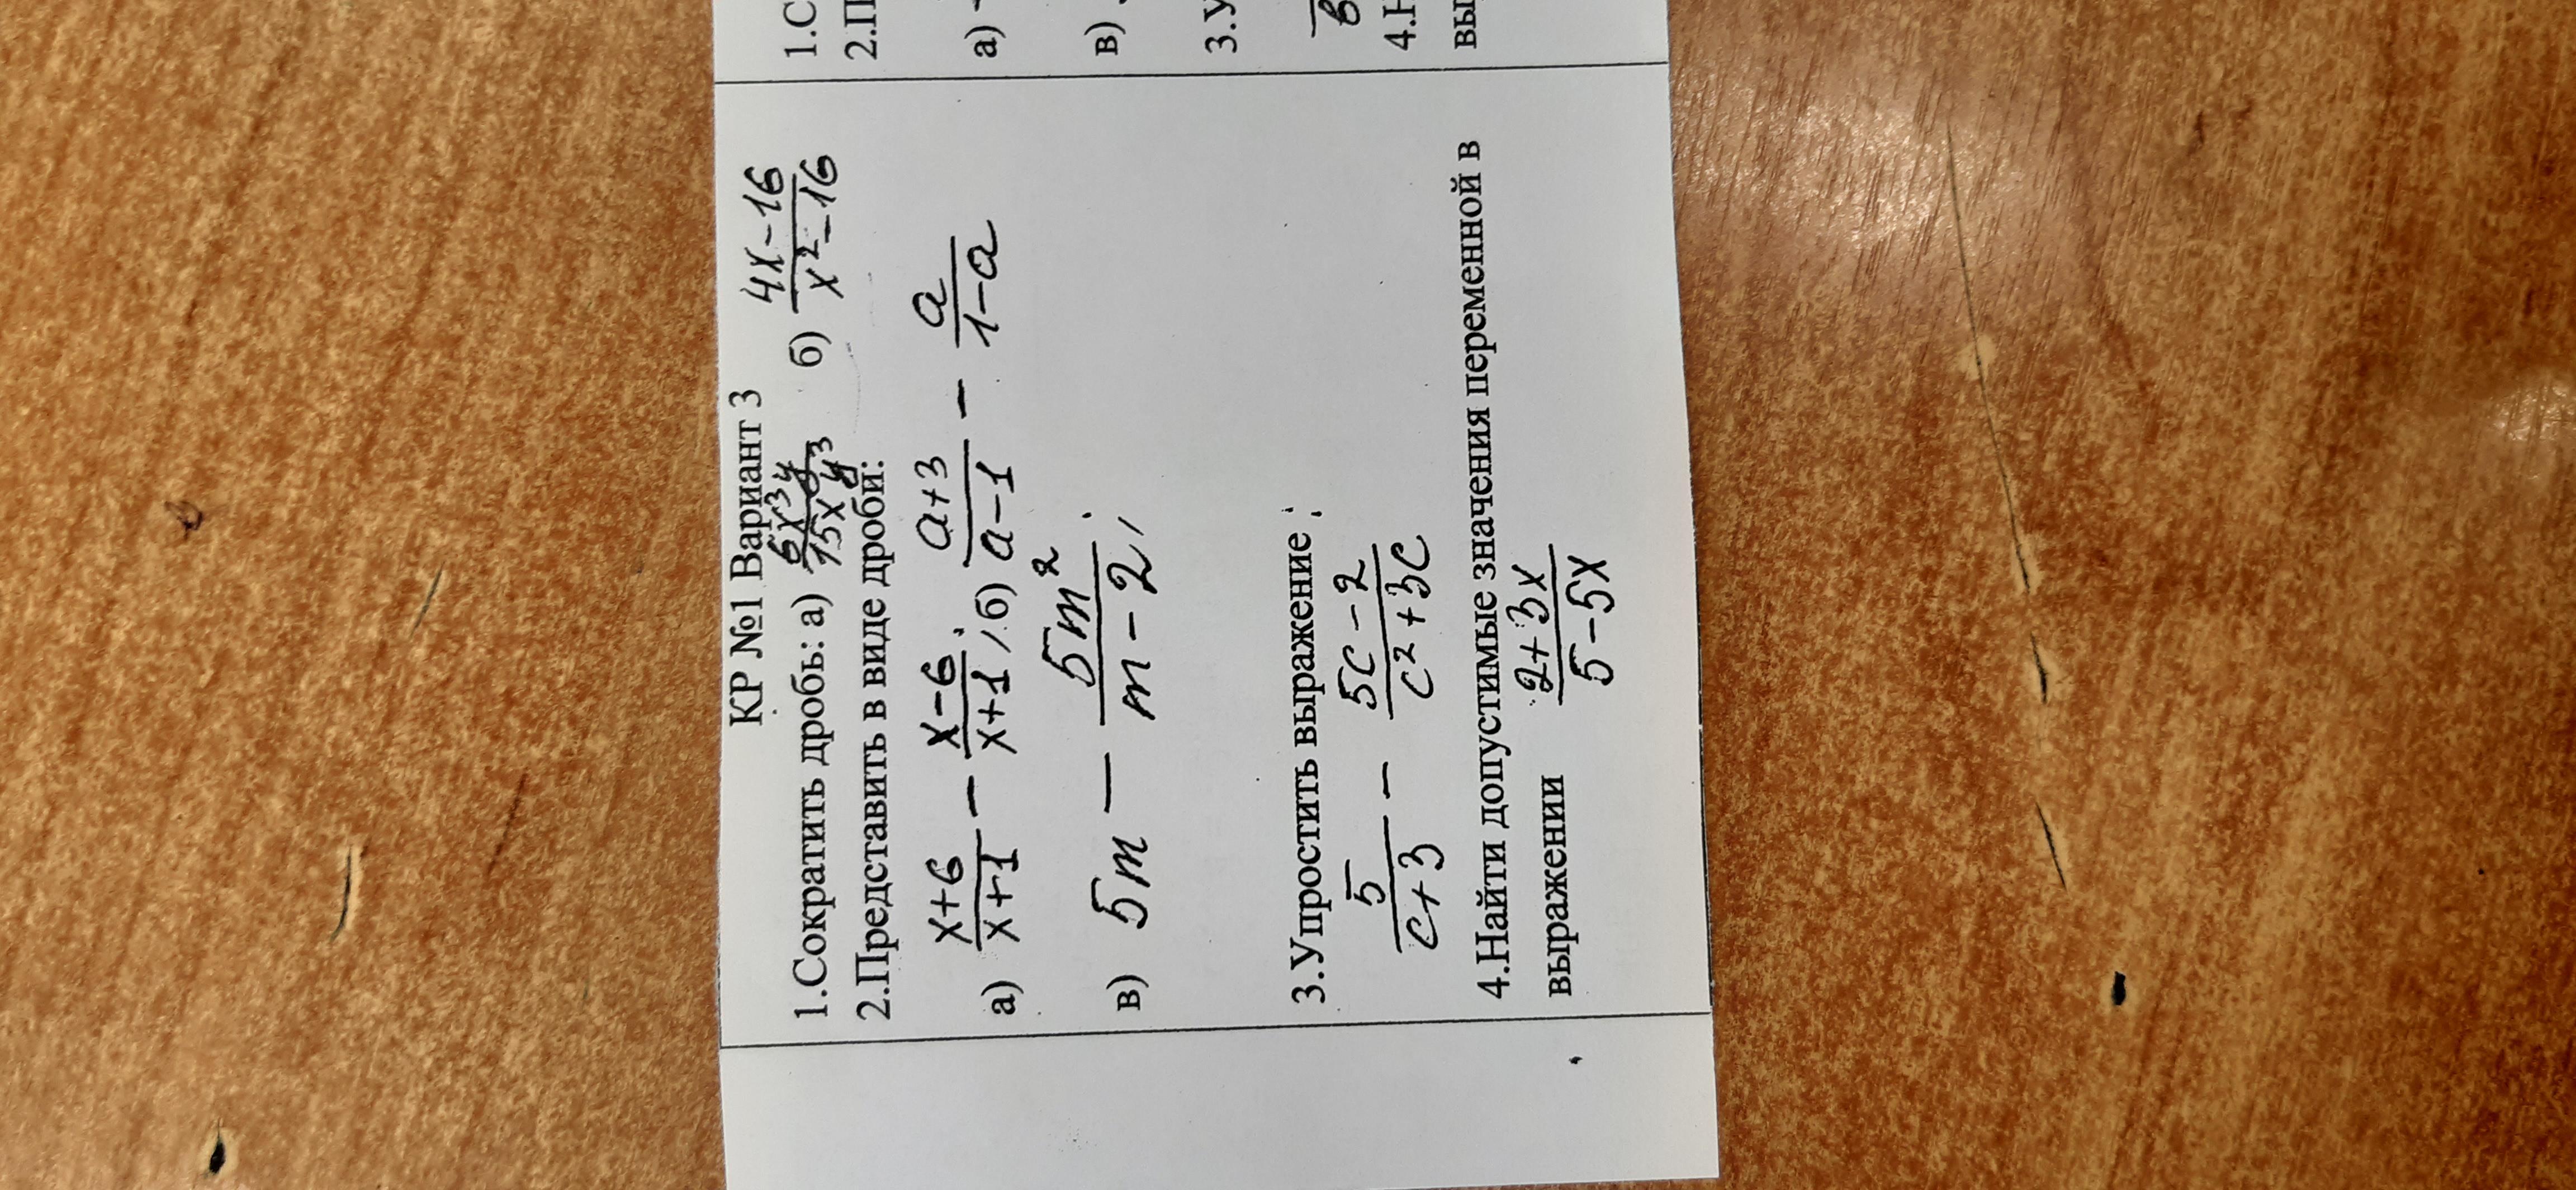 КР №1 Вариант 3
1.Сократить дробь: а) 6x³y/15xy³ б) 4x-16/x²-16
2.Представить в виде дроби:
а) x+6/x+1 - x-6/x+1; б) a+3/a-1 - a/1-a
в) 5m - 5m²/m-2;
3.Упростить выражение:
5/c+3 - 5c-2/c²+3c
4.Найти допустимые значения переменной в
выражении 2+3x/5-5x
1.С
2.П
а)
в)
3.У
в
4.Н
вы